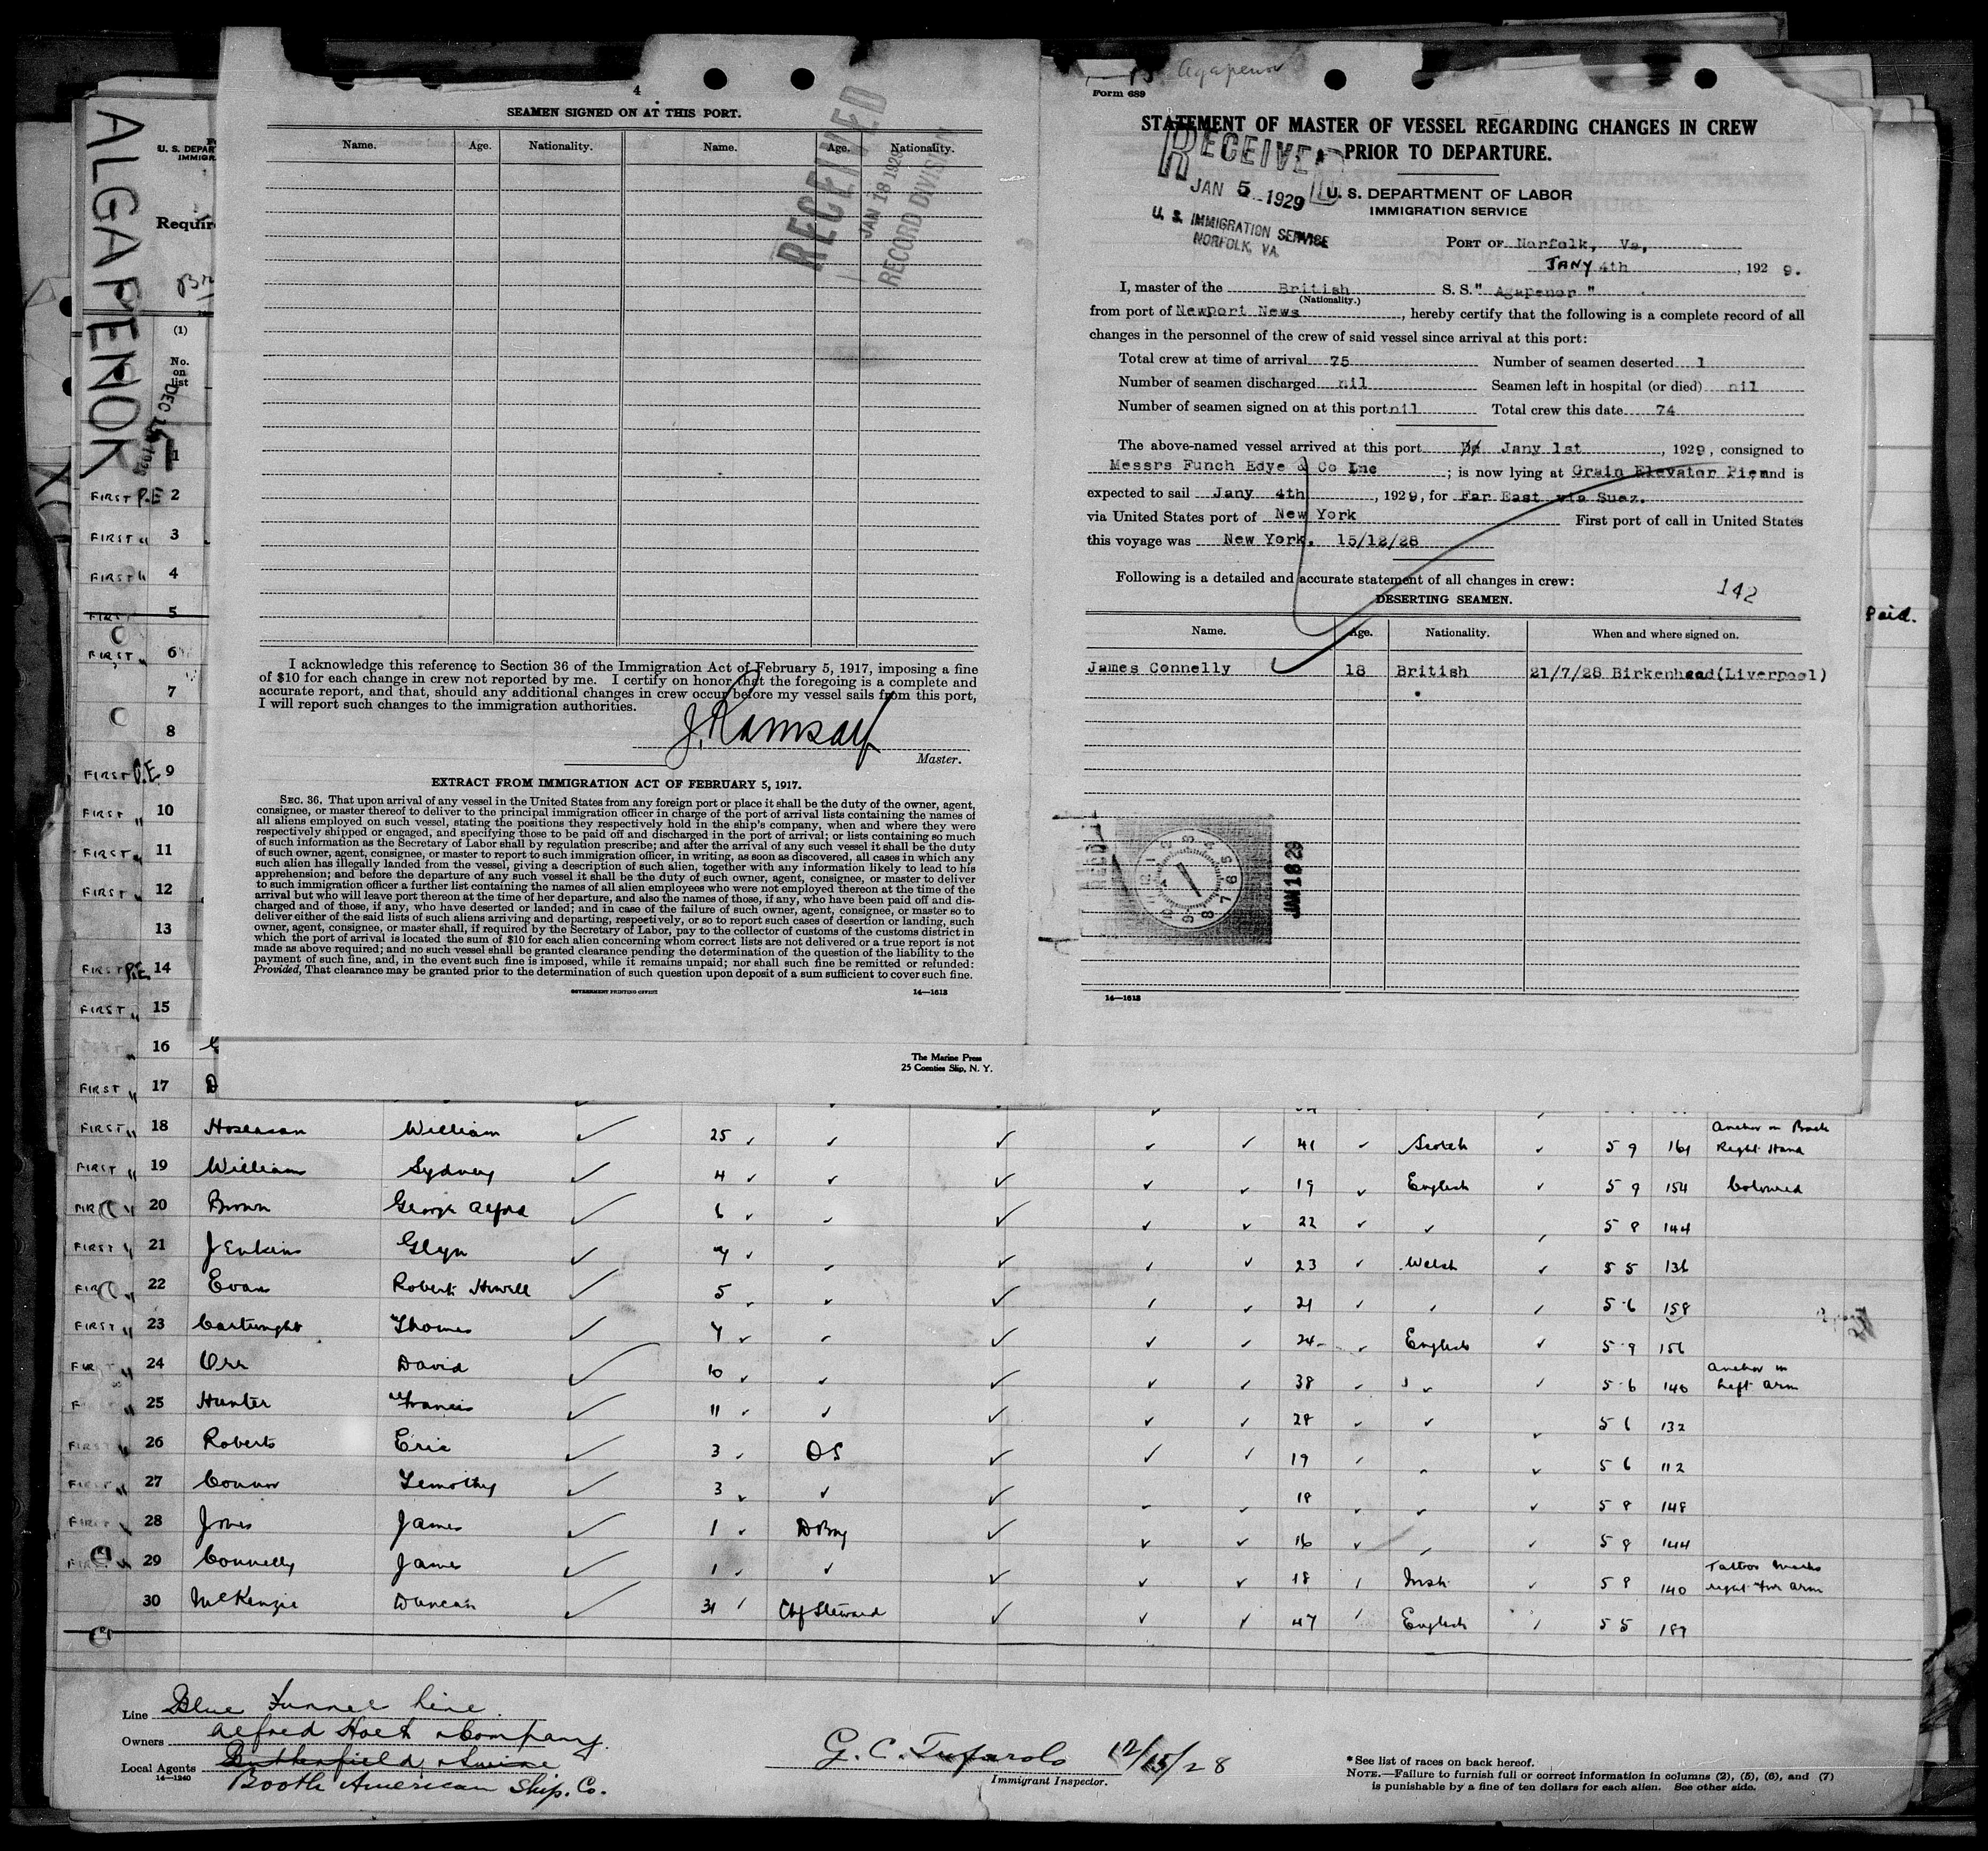 ALGAPENOR
U. S. DEPAR
IMMIGR
Requir
(1)
No.
on
list
1
FIRST P.E 2
FIRST " 3
FIRST " 4
FIRST 5
FIRST " 6
7
8
FIRST P.E 9
FIRST " 10
FIRST " 11
FIRST " 12
13
FIRST P.E 14
FIRST " 15
" 16
FIRST " 17
4
SEAMEN SIGNED ON AT THIS PORT.
Name. Age. Nationality. Name. Age. Nationality.
RECEIVED
JAN 18 1929
RECORD DIVISION
I acknowledge this reference to Section 36 of the Immigration Act of February 5, 1917, imposing a fine
of $10 for each change in crew not reported by me. I certify on honor that the foregoing is a complete and
accurate report, and that, should any additional changes in crew occur before my vessel sails from this port,
I will report such changes to the immigration authorities.
J. Ramsay
Master.
EXTRACT FROM IMMIGRATION ACT OF FEBRUARY 5, 1917.
SEC. 36. That upon arrival of any vessel in the United States from any foreign port or place it shall be the duty of the owner, agent,
consignee, or master thereof to deliver to the principal immigration officer in charge of the port of arrival lists containing the names of
all aliens employed on such vessel, stating the positions they respectively hold in the ship's company, when and where they were
respectively shipped or engaged, and specifying those to be paid off and discharged in the port of arrival; or lists containing so much
of such information as the Secretary of Labor shall by regulation prescribe; and after the arrival of any such vessel it shall be the duty
of such owner, agent, consignee, or master to report to such immigration officer, in writing, as soon as discovered, all cases in which any
such alien has illegally landed from the vessel, giving a description of such alien, together with any information likely to lead to his
apprehension; and before the departure of any such vessel it shall be the duty of such owner, agent, consignee, or master to deliver
to such immigration officer a further list containing the names of all alien employees who were not employed thereon at the time of the
arrival but who will leave port thereon at the time of her departure, and also the names of those, if any, who have been paid off and dis-
charged and of those, if any, who have deserted or landed; and in case of the failure of such owner, agent, consignee, or master so to
deliver either of the said lists of such aliens arriving and departing, respectively, or so to report such cases of desertion or landing, such
owner, agent, consignee, or master shall, if required by the Secretary of Labor, pay to the collector of customs of the customs district in
which the port of arrival is located the sum of $10 for each alien concerning whom correct lists are not delivered or a true report is not
made as above required; and no such vessel shall be granted clearance pending the determination of the question of the liability to the
payment of such fine, and, in the event such fine is imposed, while it remains unpaid; nor shall such fine be remitted or refunded:
Provided, That clearance may be granted prior to the determination of such question upon deposit of a sum sufficient to cover such fine.
GOVERNMENT PRINTING OFFICE 14—1613
The Marine Press
25 Coenties Slip, N. Y.
Agapenor
Form 689
STATEMENT OF MASTER OF VESSEL REGARDING CHANGES IN CREW
PRIOR TO DEPARTURE.
RECEIVED
JAN 5 1929
U. S. IMMIGRATION SERVICE
NORFOLK, VA.
U. S. DEPARTMENT OF LABOR
IMMIGRATION SERVICE
PORT OF Norfolk, Va,
JANY 4th, 1929.
I, master of the British S. S. "Agapenor"
(Nationality.)
from port of Newport News, hereby certify that the following is a complete record of all
changes in the personnel of the crew of said vessel since arrival at this port:
Total crew at time of arrival 75 Number of seamen deserted 1
Number of seamen discharged nil Seamen left in hospital (or died) nil
Number of seamen signed on at this port nil Total crew this date 74
The above-named vessel arrived at this port Jany 1st, 1929, consigned to
Messrs Funch Edye & Co Inc; is now lying at Grain Elevator Pier and is
expected to sail Jany 4th, 1929, for Far East via Suez.
via United States port of New York First port of call in United States
this voyage was New York. 15/12/28
Following is a detailed and accurate statement of all changes in crew:
142
DESERTING SEAMEN.
Name. Age. Nationality. When and where signed on.
James Connelly 18 British 21/7/28 Birkenhead(Liverpool)
JAN 18 29
14—1613
Paid.
FIRST " 18 Hoseason William 25 41 Scotch 5 9 161 Anchor on Back Right Hand
FIRST " 19 William Sydney 4 19 English 5 9 154 Coloured
FIRST " 20 Brown George Alfred 6 22 5 8 144
FIRST " 21 Jenkins Glyn 4 23 Welsh 5 5 136
FIRST " 22 Evans Robert Howell 5 21 5 6 158
FIRST " 23 Cartwright Thomas 4 24 English 5 9 156
FIRST " 24 Orr David 10 38 5 6 140 Anchor on Left Arm
FIRST " 25 Hunter Francis 11 28 5 6 132
FIRST " 26 Roberts Eric 3 OS 19 5 6 112
FIRST " 27 Connor Timothy 3 18 5 8 148
FIRST " 28 Jones James 1 D Boy 16 5 8 144
FIRST " 29 Connelly James 1 18 Irish 5 8 140 Tattoo marks right fore arm
30 McKenzie Duncan 31 Chf Steward 47 English 5 5 189
Line Blue Funnel Line
Owners Alfred Holt & Company.
Local Agents Butterfield & Swire
14—1240
Booth American Ship. Co.
G. C. Tufarolo 12/15/28
Immigrant Inspector.
*See list of races on back hereof.
NOTE.—Failure to furnish full or correct information in columns (2), (5), (6), and (7)
is punishable by a fine of ten dollars for each alien. See other side.